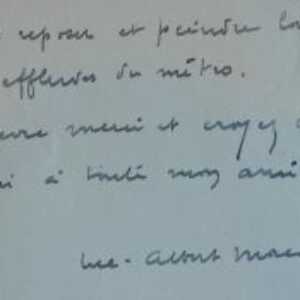 reposer et peindre lo
effluves du métro.
merci et croyez
à toute mon ami
Luc-Albert More